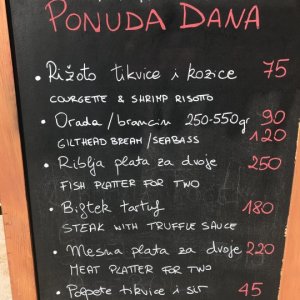 PONUDA DANA
• Rižoto tikvice i kozice 75
COURGETTE & SHRIMP RISOTTO
• Orada/brancin 250-550gr 90
GILTHEAD BREAM/SEABASS 120
• Riblja plata za dvoje 250
FISH PLATTER FOR TWO
• Biftek tartuf 180
STEAK WITH TRUFFLE SAUCE
• Mesna plata za dvoje 220
MEAT PLATTER FOR TWO
• Polpete tikvice i sir 45